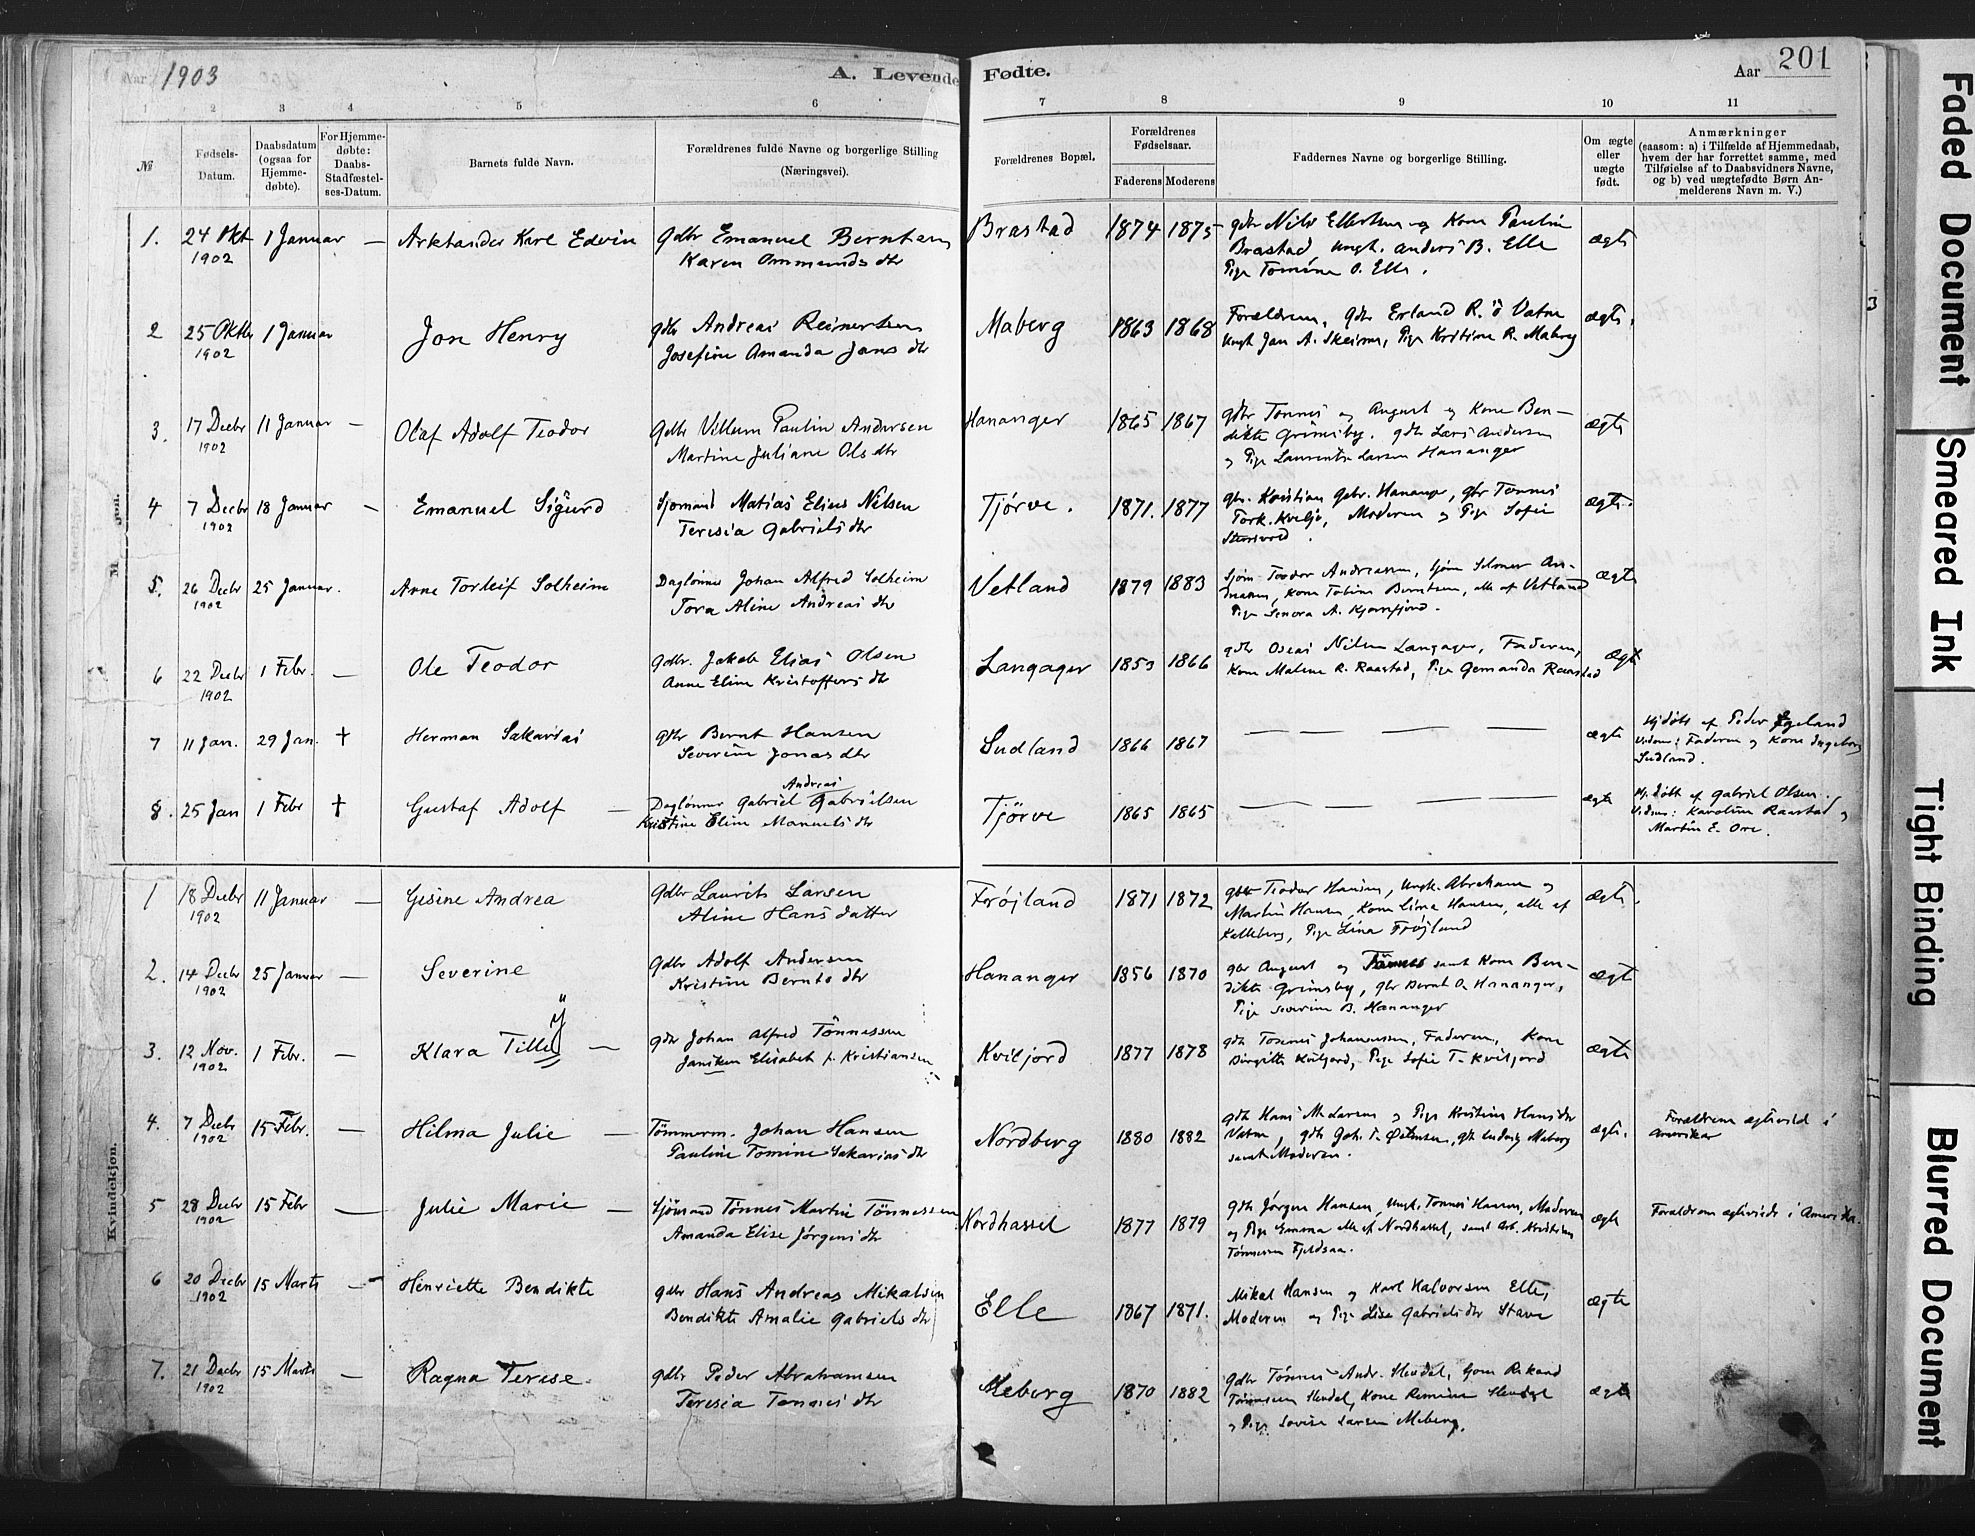 Aar 1903
A. Levende Fødte.
Aar 201
1 2 3 4 5 6 7 8 9 10 11
№
Fødsels-Datum.
Daabsdatum (ogsaa for Hjemme-døbte).
For Hjemme-døbte: Daabs-Stadfæstel-ses-Datum.
Barnets fulde Navn.
Forældrenes fulde Navne og borgerlige Stilling (Næringsvei).
Forældrenes Bopæl.
Forældrenes Fødselsaar.
Faderens Moderens
Faddernes Navne og borgerlige Stilling.
Om ægte eller uægte født.
Anmærkninger (saasom: a) i Tilfælde af Hjemmedaab, hvem der har forrettet samme, med Tilføielse af to Daabsvidners Navne, og b) ved uægtefødte Børn An-melderens Navn m. V.)
1. 24 Okt 1902 1 Januar — Karl Edvin Gdbr Emanuel Berntsen
Karen Ommunds dtr
Brastad 1874 1875 gdbr Nils Ellertsen og Kone Pauline
Brastad, Ungk. Anders B. Elle
Pige Tomine O. Elle.
ægte
2 25 Oktbr 1902 1 Januar Jon Henry gdbr Andreas Reinertsen
Josefine Amanda Jans dtr
Maberg 1863 1868 Forældrene, gdbr Erland R. Vatne
Ungk Jan A. Skeime, Pige Kristine R. Maberg
ægte.
3. 17 Decbr 1902 11 Januar — Olaf Adolf Teodor Gdbr Villum Paulin Andersen
Martine Juliane Ols dtr
Hananger 1865 1867 gdbr Tønnes og August og Kone Ben-
dikte Grimsby. gdbr Lars Andersen
og Pige Larsen Hananger
ægte
4 7 Decbr 1902 18 Januar — Emanuel Sigurd Sjømand Matias Elius Nilsen
Teresia Gabriels dtr
Tjørve. 1871. 1877 gbr. Kristian Gabr. Hananger, gbr Tønnes
Tork. Kviljo, Moderen og Pige Sofie
ægte.
5. 26 Decbr 1902 25 Januar. Arne Torleif Solheim Daglønner Johan Alfred Solheim
Tora Aline Andreas dtr
Vetland 1879 1883 Sjøm. Teodor Andreassen, Sjøm An-
dreassen, Kone Tobine Berntsen, alle af Vetland
Pige Senora A.
ægte
6 22 Decbr 1902 1 Febr. — Ole Teodor Gdbr. Jakob Elias Olsen
Anne Eline Kristoffers dtr
Langager 1853 1866 gdbr Oseas Nilsen Langager, Faderen,
Kone Malene R. Raastad, Pige Gemanda Raastad
ægte
7 11 Jan. 29 Jan. † Herman Sakarias gdbr Bernt Hansen
Severine Jonas dtr
Sudland 1866 1867 — — — —
ægte
Hjdøbt af Peder Egeland
Vidner: Faderen og Kone Ingeborg
Sudland.
8. 25 Jan 1 Febr † Gustaf Adolf — Andreas
Daglønner Gabriel Gabrielsen
Kristine Eline Manuels dtr
Tjørve 1865 1865 — — — —
ægte
Hj. døbt af Gabriel Olsen.
Vidner: Karoline Raastad og
Martin E. Ore.
Kvindekjøn.
1 18 Decbr 1902 11 Januar — Gesine Andrea Gdbr Laurits Larsen
Aline Hans datter
Frøjland 1871 1872 gdbr Teodor Hansen, Ungk. Abraham og
Martin Hansen, Kone Lina Hansen, alle af
Kalleberg, Pige Lina Frøjland
ægte.
2. 14 Decbr 1902 25 Januar — Severine Gdbr Adolf Andersen
Kristine Bernts dtr
Hananger 1856 1870 gbr August og Tønnes samt Kone Ben-
dikte Grimsby, gbr Bernt O. Hananger,
Pige Severine B. Hananger
ægte
3. 12 Nov. 1902 1 Febr. — Klara Tilly — gdbr Johan Alfred Tønnessen
Janiken Elisabet f. Kristiansen
Kviljord 1877 1878 gdb Tønnes Johannessen, Faderen, Kone
Birgitte Kviljord, Pige Sofie T. Kviljord
ægte
4. 7 Decbr 1902 15 Febr. — Hilma Julie — Tømmerm. Johan Hansen
Pauline Tomine Sakarias dtr
Nordberg 1880 1882 gdb Hans M. Larsen og Pige Kristine Hans dtr
Vatne, gdb Joh. T. gb Ludvig Maberg
samt Moderen.
ægte.
Forældrene ægteviet i
Amerika
5 28 Decbr 1902 15 Febr — Julie Marie — Sjømand Tønnes Martin Tønnessen
Amanda Elise Jørgens dtr
Nordhassel 1877 1879 gdb Jørgen Hansen, Ungk. Tønnes Hansen, Moderen
og Pige Emma alle af Nordhassel, samt Arb. Kristian
Tønnessen Fjeldsaa.
ægte
Forældrene ægteviede i Amerika.
6 20 Decbr 1902 15 Marts — Henriette Bendikte gdbr Hans Andreas Mikalsen
Bendikte Amalie Gabriels dtr
Elle 1867 1871. Mikal Hansen og Karl Halvorsen Elle,
Moderen og Pige Lise Gabriels dtr Stave
ægte
7. 21 Decbr 1902 15 Marts — Ragna Terese. gdbr Peder Abrahamsen
Teresia Tønnes dtr
Meberg 1870 1882 gdbr Tønnes Andr. Hendal, Rikard
Tønnessen Hendal, Kone Hendal
og Pige Lovise Larsen Meberg.
ægte
Faded Document
Smeared Ink
Tight Binding
Blurred Document